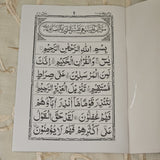 بِسْمِ اللهِ الرَّحْمٰنِ الرَّحِيْمِ
يٰسٓ ۚ وَالْقُرْاٰنِ الْحَكِيْمِ ۙ اِنَّكَ
لَمِنَ الْمُرْسَلِيْنَ ۙ عَلٰى صِرَاطٍ
مُّسْتَقِيْمٍ ؕ تَنْزِيْلَ الْعَزِيْزِ الرَّحِيْمِ ۙ
لِتُنْذِرَ قَوْمًا مَّاۤ اُنْذِرَ اٰبَآؤُهُمْ
فَهُمْ غٰفِلُوْنَ لَقَدْ حَقَّ الْقَوْلُ
عَلٰۤى اَكْثَرِهِمْ فَهُمْ لَا يُؤْمِنُوْنَ